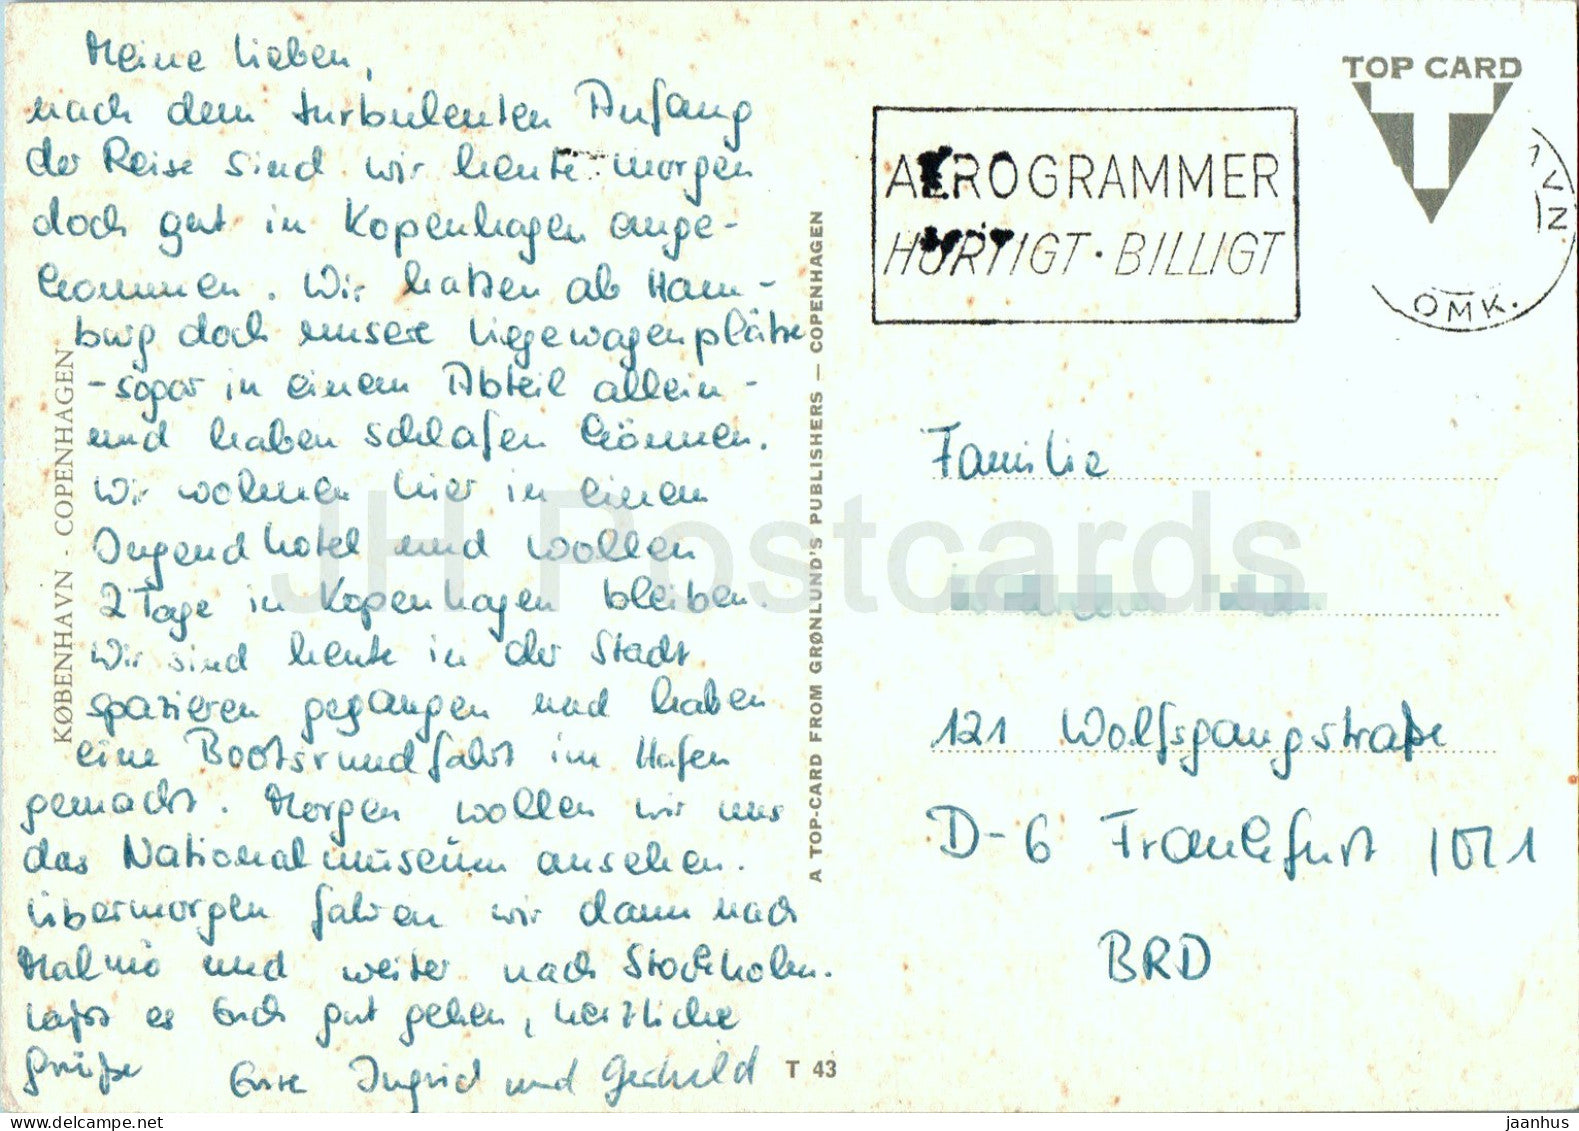 Meine lieben,
nach dem turbulenten Anfang
der Reise sind wir heute morgen
doch gut in Kopenhagen ange-
kommen. Wir hatten ab Ham-
burg doch unsere Liegewagenplätze
- sogar in einem Abteil allein -
und haben schlafen können.
Wir wohnen hier in einem
Jugendhotel und wollen
2 Tage in Kopenhagen bleiben.
Wir sind heute in der Stadt
spazieren gegangen und haben
eine Bootsrundfahrt im Hafen
gemacht. Morgen wollen wir uns
das Nationalmuseum ansehen.
Übermorgen fahren wir dann nach
Malmö und weiter nach Stockholm.
Laßt es Euch gut gehen, herzliche
Grüße Eure Ingrid und Gerhild
KØBENHAVN - COPENHAGEN
A TOP-CARD FROM GRØNLUND'S PUBLISHERS — COPENHAGEN
T 43
TOP CARD
T
AEROGRAMMER
HURTIGT · BILLIGT
VN
OMK.
Familie
121 Wolfsgangstraße
D-6 Frankfurt 1
BRD
JH Postcards
www.delcampe.net
jaanhus